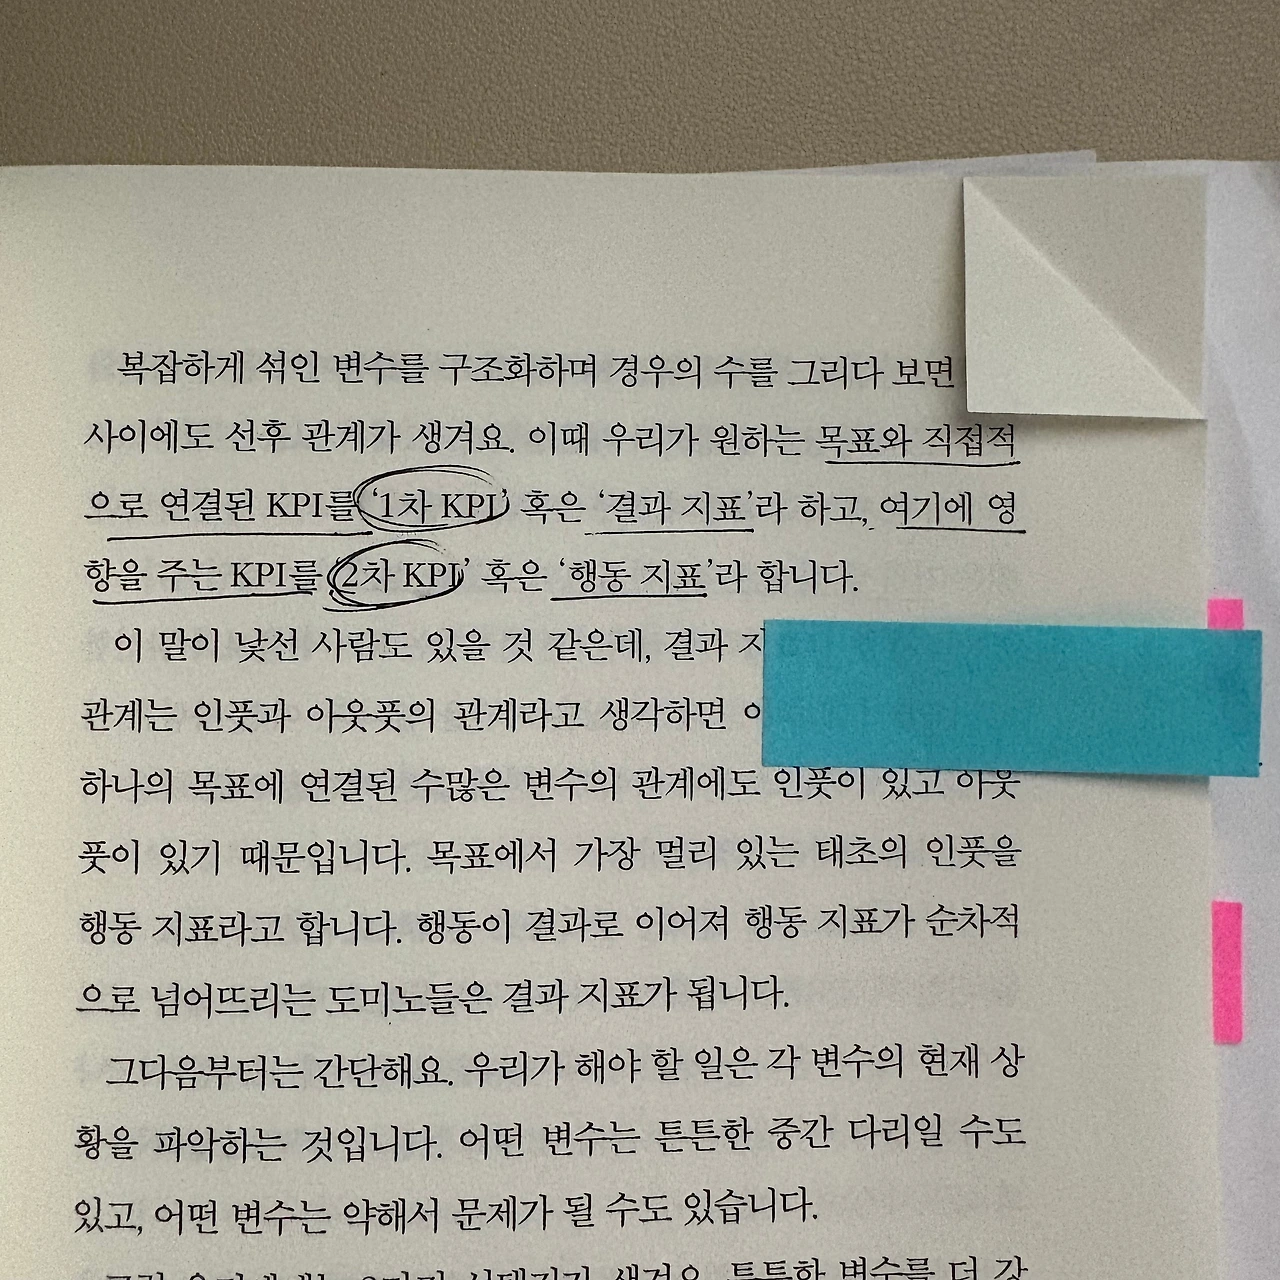 복잡하게 섞인 변수를 구조화하며 경우의 수를 그리다 보면
사이에도 선후 관계가 생겨요. 이때 우리가 원하는 목표와 직접적
으로 연결된 KPI를 ‘1차 KPI’ 혹은 ‘결과 지표’라 하고, 여기에 영
향을 주는 KPI를 ‘2차 KPI’ 혹은 ‘행동 지표’라 합니다.
이 말이 낯선 사람도 있을 것 같은데, 결과
관계는 인풋과 아웃풋의 관계라고 생각하면
하나의 목표에 연결된 수많은 변수의 관계에도 인풋이 있고 아웃
풋이 있기 때문입니다. 목표에서 가장 멀리 있는 태초의 인풋을
행동 지표라고 합니다. 행동이 결과로 이어져 행동 지표가 순차적
으로 넘어뜨리는 도미노들은 결과 지표가 됩니다.
그다음부터는 간단해요. 우리가 해야 할 일은 각 변수의 현재 상
황을 파악하는 것입니다. 어떤 변수는 튼튼한 중간 다리일 수도
있고, 어떤 변수는 약해서 문제가 될 수도 있습니다.
생겨요. 튼튼한 변수를 더